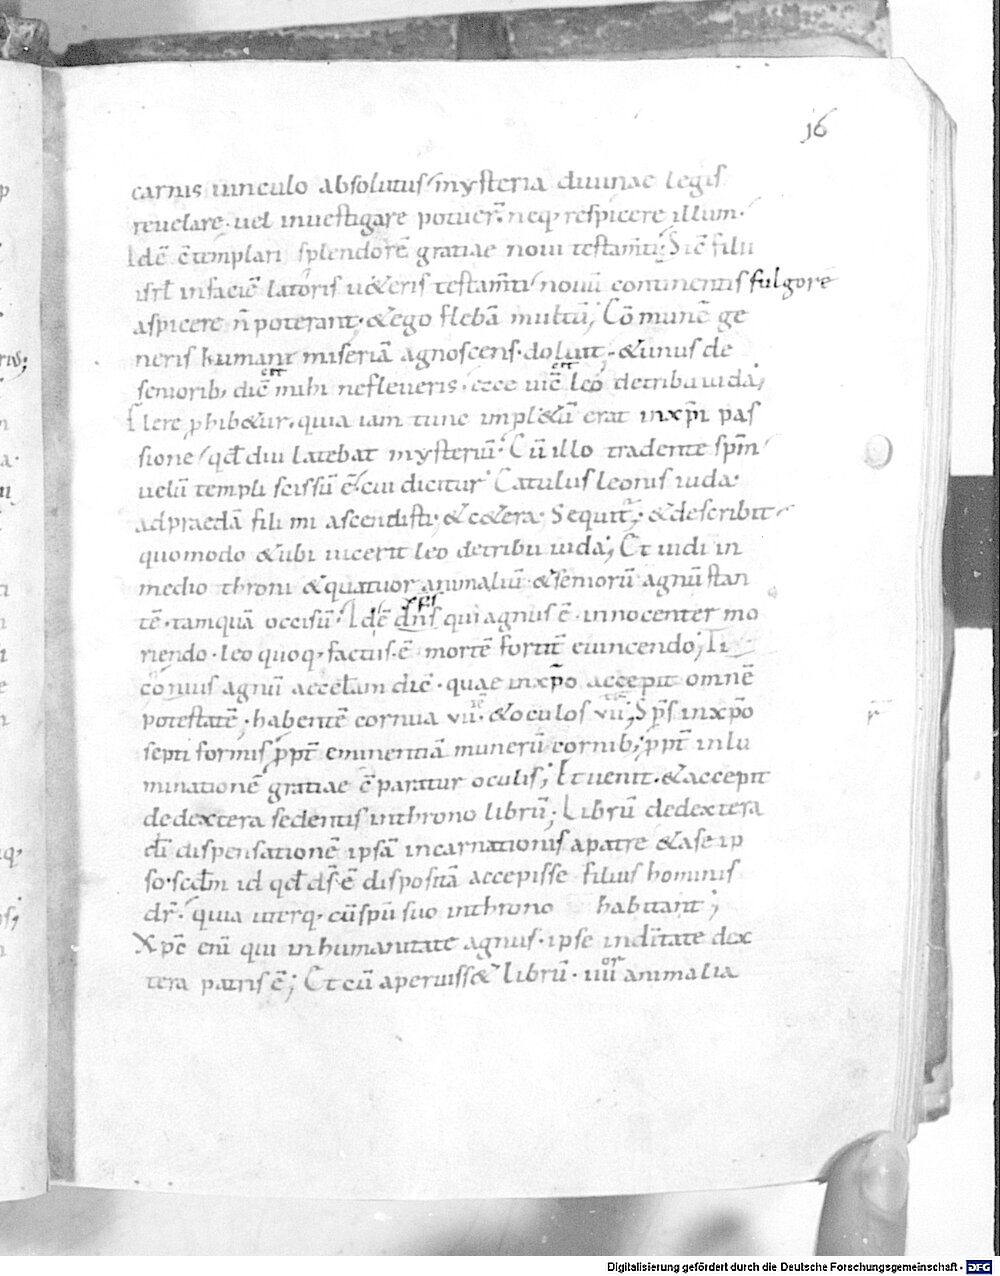 16
carnis uinculo absolutus mysteria diuinae legis
reuelare · uel inuestigare potuer̄ · neq; respicere illum ·
Idē c̄templari splendorē gratiae noui testam̄ti; Sic̄ filii
isrl̄ in faciē latoris u&eris testam̄ti nouū continentis fulgorē
aspicere n̄ poterant · & ego flebā multū; Cōmunē ge
neris humani miseriā agnoscens · doluit · & unus de
seniorib; dic̄ mihi ne fleueris · ecce uic̄ leo de tribu iuda;
Flere phib&ur · quia iam tunc impl&ū erat in xp̄i pas
sione qd̄ diu latebat mysteriū · Cū illo tradente sp̄m
uelū templi scissū ē · cui dicitur Catulus leonis iuda ·
ad praedā fili mi ascendisti; & c&era · Sequit̄; & describit
quomodo & ubi uicerit leo de tribu iuda; Et uidi in
medio throni & quatuor animaliū & seniorū agnū stan
tē · tamquā occisū · Idē dn̄s qui agnus ē · innocenter mo
riendo · leo quoq; factus ē mortē fortit̄ euincendo;
agnū dic̄ · quae in xp̄o accepit omnē
potestatē · habentē cornua vii · & oculos vii; Sp̄s in xp̄o
septiformis ppt̄ eminentiā munerū cornib; ppt̄ inlu
minationē gratiae cōparatur oculis; Et uenit · & accepit
de dextera sedentis in throno librū; Librū de dextera
dī dispensationē ipsā incarnationis a patre & a se ip
so · scd̄m id qd̄ ds̄ ē dispositā accepisse filius hominis
dr̄ · quia uterq; cū spū suo in throno habitant;
Xp̄c enī qui in humanitate agnus · ipse in dītate dex
tera patris ē; Et cū aperuiss& librū · iiii or animalia
Digitalisierung gefördert durch die Deutsche Forschungsgemeinschaft - DFG